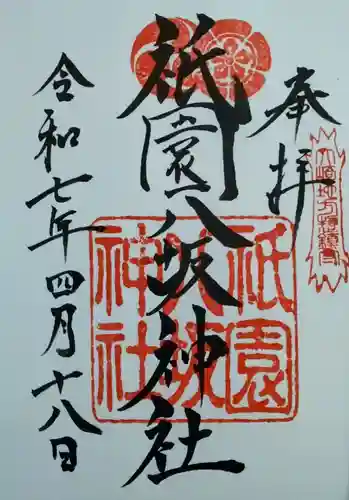 奉拝
祇園八坂神社
祇園
八坂
神社
令和七年四月十八日